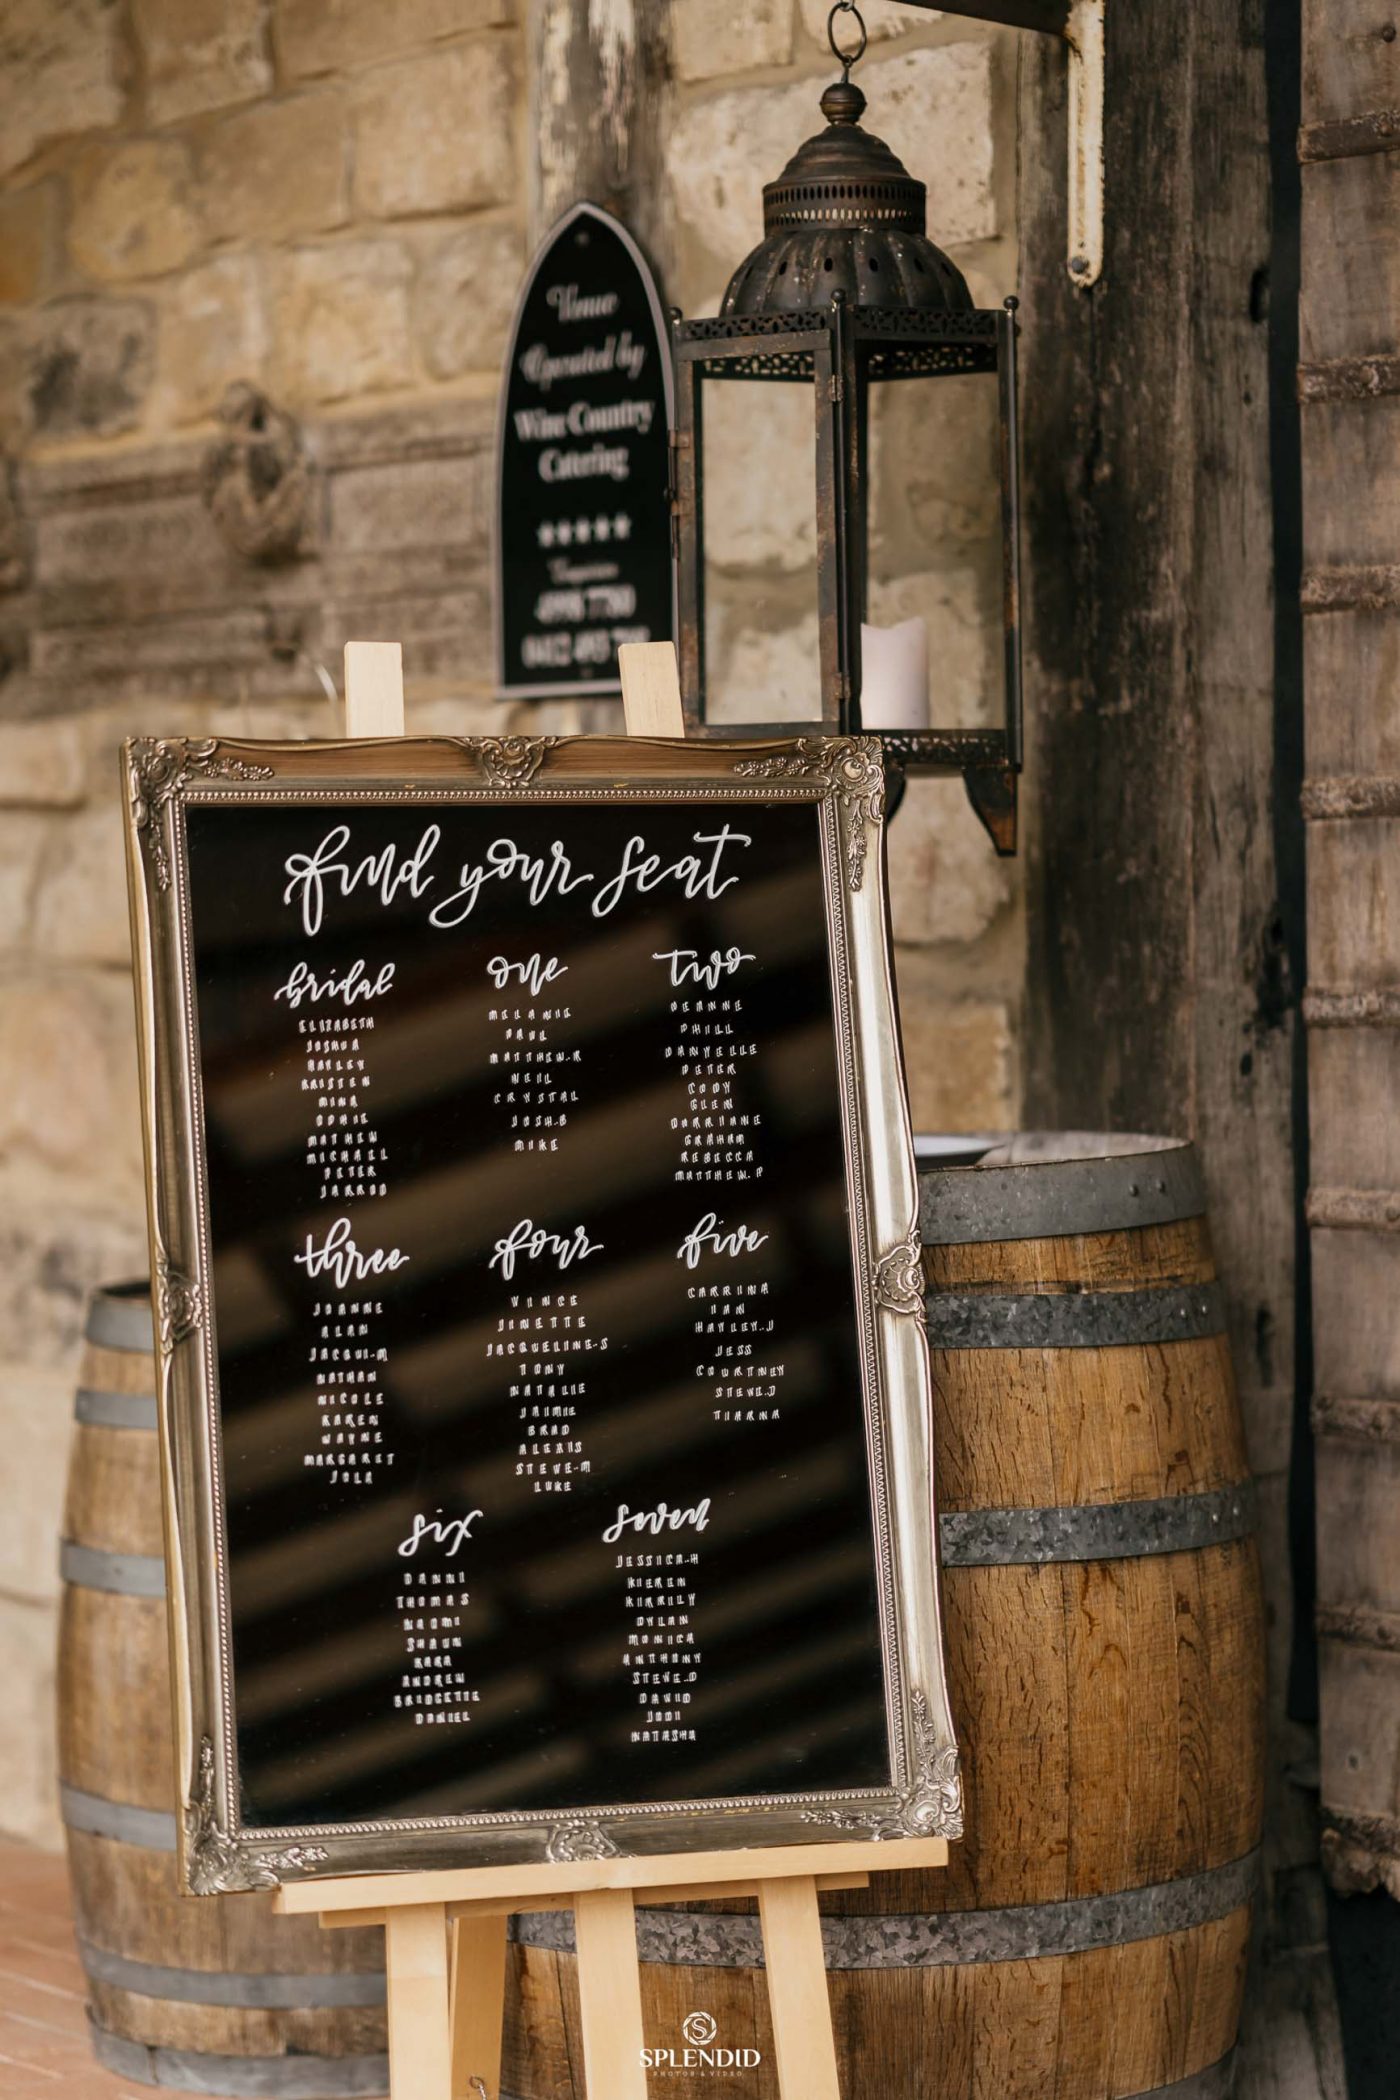 Venue
Operated by
Wine Country
Catering
find your seat
bridal
ELIZABETH
JOSHUA
HAYLEY
KRISTEN
MINA
MATHEW
MICHAEL
PETER
JARROD
one
MELANIE
PAUL
MATTHEW.R
NEIL
CRYSTAL
JOSH.B
MIKE
two
DEANNE
PHILL
DANYELLE
PETER
CODY
GLEN
DARRIANE
GRAHAM
REBECCA
MATTHEW.P
three
JOANNE
ALAN
JACQUI.M
NATHAN
NICOLE
KAREN
WAYNE
MARGARET
JULA
four
VINCE
JINETTE
JACQUELINE-S
TONY
NATALIE
JAIMIE
BRAD
ALEXIS
STEVE-M
LUKE
five
CARRINA
IAN
HAYLEY.J
JESS
COURTNEY
STEVE.J
TIARNA
six
DANNI
THOMAS
NAOMI
SHAUN
KARA
ANDREW
BRIDGETTE
DANIEL
seven
JESSICA-H
KIEREN
KIRRILY
DYLAN
MONICA
ANTHONY
STEVE.D
DAVID
JODI
NATASHA
S
SPLENDID
PHOTOS & VIDEO